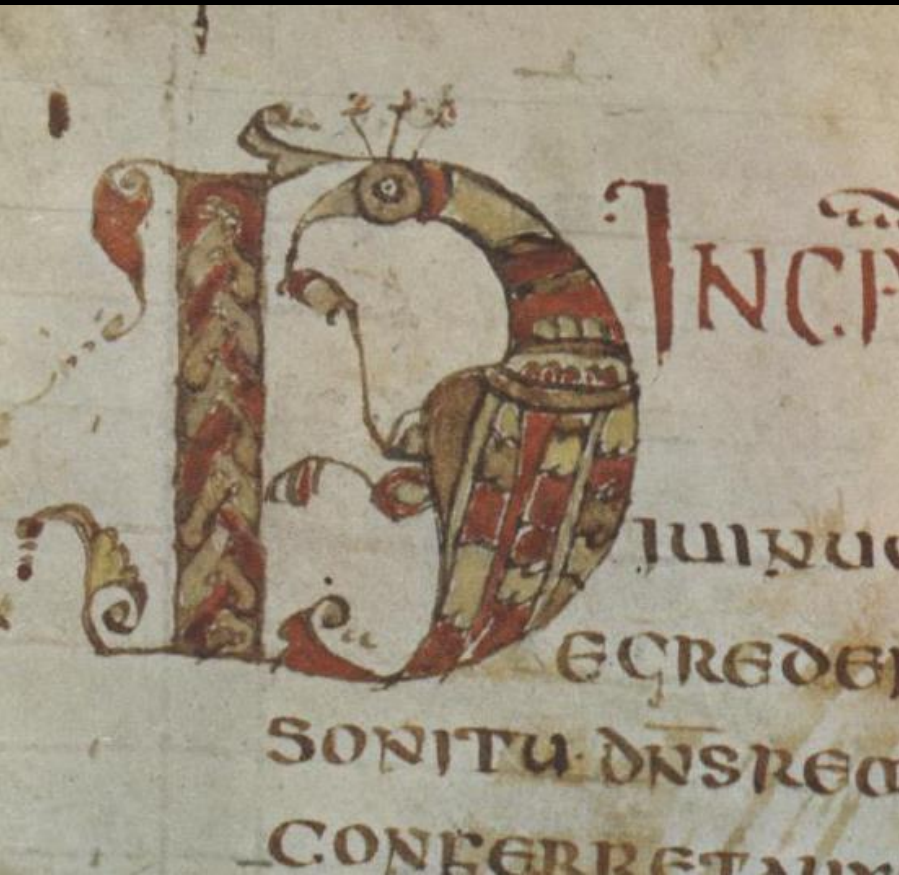 INCP
DIUINU
EGREDE
SONITU· DN̅SRE
CONFERRETAU